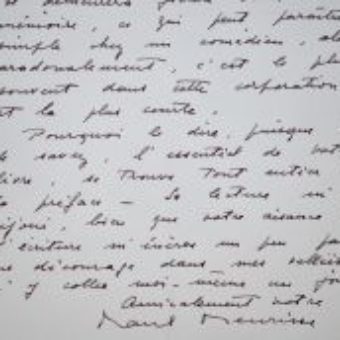 se demander
mémoire, ce qui peut paraître
simple chez un comédien, al
paradoxalement, c'est le plus
souvent dans cette corporation
est la plus courte.
Pourquoi le dire, puisque
savez, l'essentiel de vot
livre, se trouve tout entier
préface - Sa lecture m'
réjoui, bien que votre aisance
d'écriture m' un peu
décourage dans mes
y colle moi-même un jo
Amicalement votre
Paul Meurisse